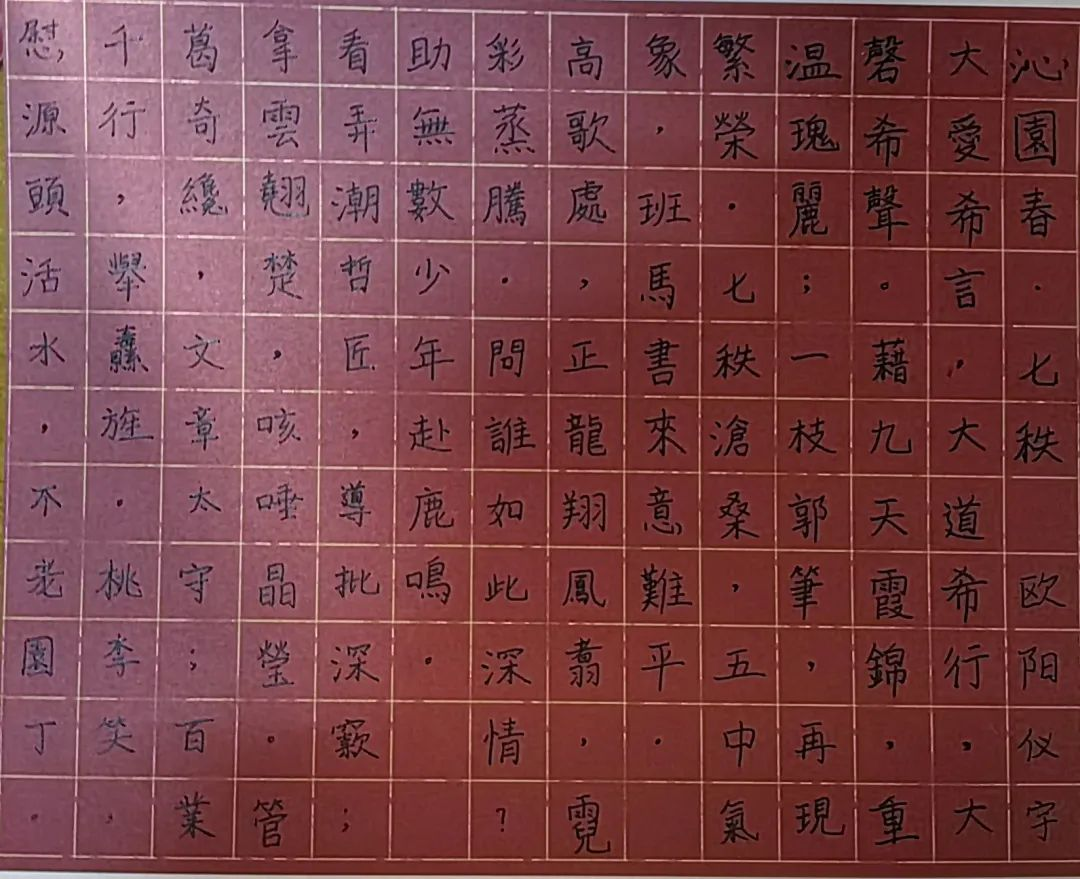 沁園春·七秩 欧阳仪字
大愛希言，大道希行，大
磬希聲。藉九天霞錦，重
温瑰麗；一枝郭筆，再現
繁榮．七秩滄桑，五中氣
象，班馬書來意難平．
高歌處，正龍翔鳳翥，霓
彩蒸騰．問誰如此深情？
助無數少年赴鹿鳴。
看弄潮哲匠，導批深窾；
拿雲翹楚，咳唾晶瑩。管
葛奇纔，文章太守；百業
千行，舉纛旌。桃李笑，
慰，源頭活水，不老園丁。